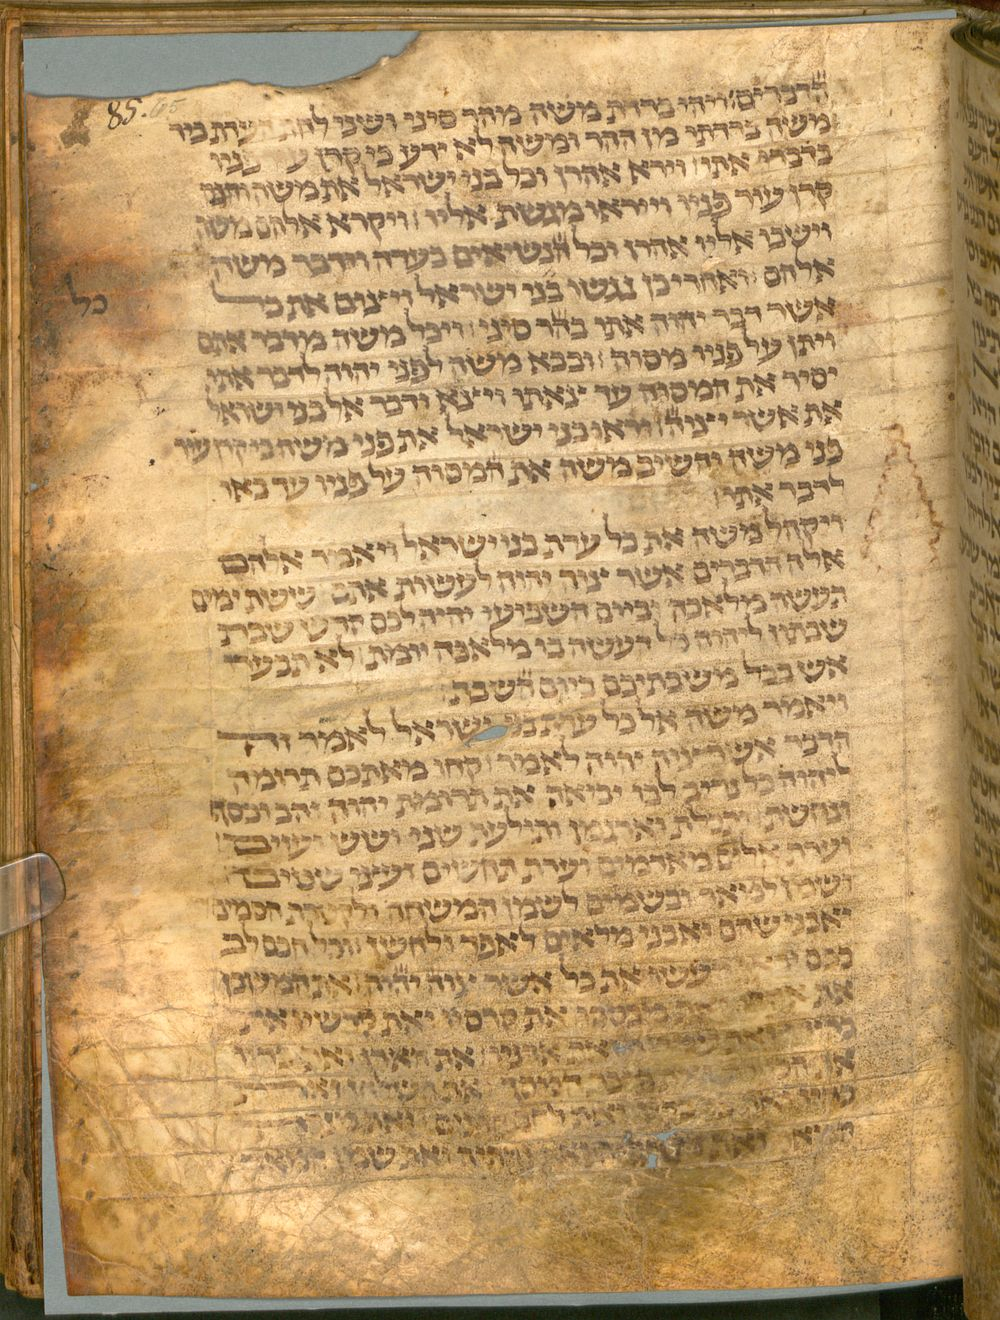 85. 65
הדברים ויהי ברדת משה מהר סיני ושני לחת העדת ביד
משה ברדתו מן ההר ומשה לא ידע כי קרן עור פניו
בדברו אתו וירא אהרן וכל בני ישראל את משה והנה
קרן עור פניו וייראו מגשת אליו ויקרא אלהם משה
וישבו אליו אהרן וכל הנשיאים בעדה וידבר משה
אלהם ואחרי כן נגשו בני ישראל ויצום את כל
כל
אשר דבר יהוה אתו בהר סיני ויכל משה מדבר אתם
ויתן על פניו מסוה ובבא משה לפני יהוה לדבר אתו
יסיר את המסוה עד צאתו ויצא ודבר אל בני ישראל
את אשר יצוה וראו בני ישראל את פני משה כי קרן עור
פני משה והשיב משה את המסוה על פניו עד באו
לדבר אתו
ויקהל משה את כל עדת בני ישראל ויאמר אלהם
אלה הדברים אשר צוה יהוה לעשות אתם ששת ימים
תעשה מלאכה וביום השביעי יהיה לכם קדש שבת
שבתון ליהוה כל העשה בו מלאכה יומת לא תבערו
אש בכל משבתיכם ביום השבת
ויאמר משה אל כל עדת בני ישראל לאמר זה
הדבר אשר צוה יהוה לאמר קחו מאתכם תרומה
ליהוה כל נדיב לבו יביאה את תרומת יהוה זהב וכסף
ונחשת ותכלת וארגמן ותולעת שני ושש ועזים
וערת אילם מאדמים וערת תחשים ועצי שטים
ושמן למאור ובשמים לשמן המשחה ולקטרת הסמים
ואבני שהם ואבני מלאים לאפד ולחשן וכל חכם לב
בכם יעשו את כל אשר צוה יהוה את המשכן
את את מכסהו את קרסיו ואת קרשיו את
ואת אדניו את הארן ואת בדיו
את המסך את השלחן ואת
ואת לחם הפנים ואת מנרת
ואת ואת שמן המאור